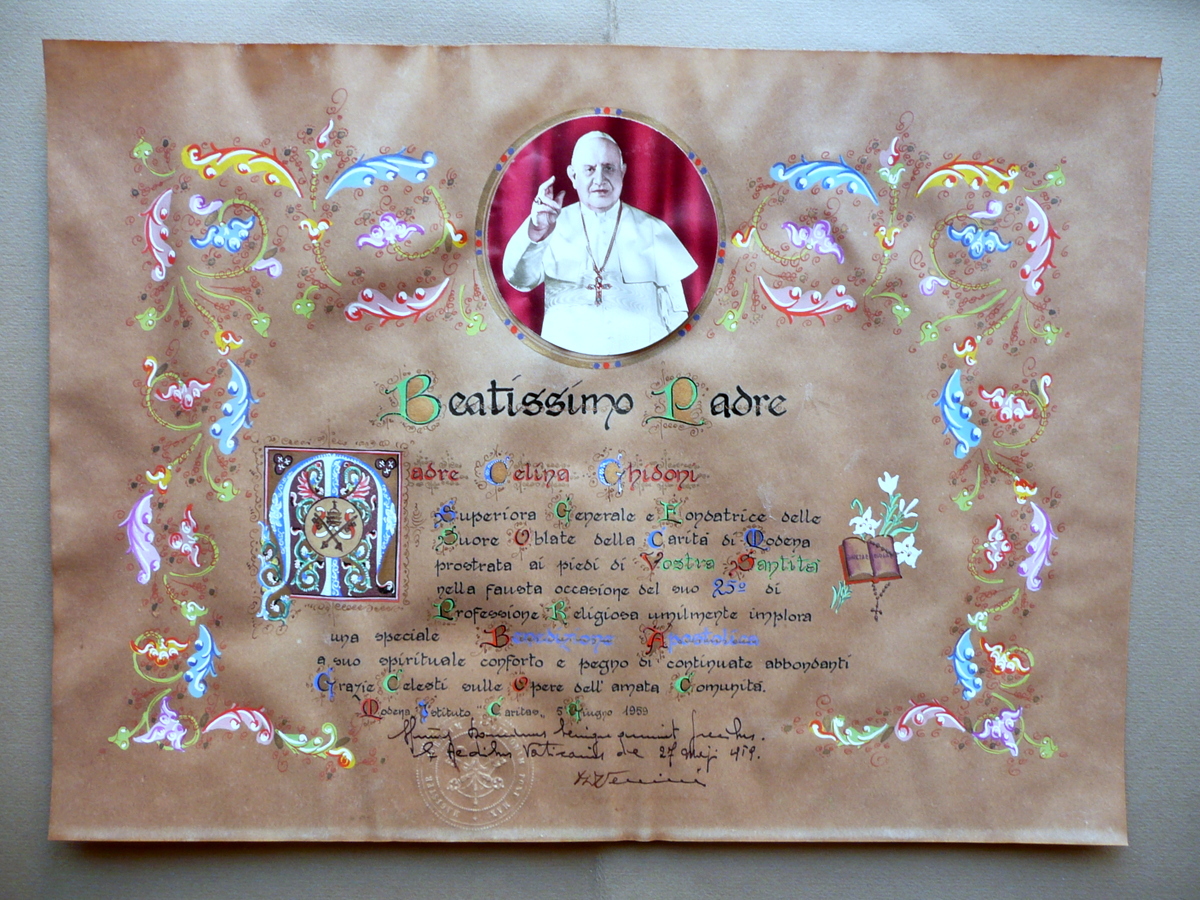 Beatissimo Padre
Madre Celina Ghidoni
Superiora Generale e Fondatrice delle
Suore Oblate della Carità di Modena
prostrata ai piedi di Vostra Santità
nella fausta occasione del suo 25º di
Professione Religiosa umilmente implora
una speciale Benedizione Apostolica
a suo spirituale conforto e pegno di continuate abbondanti
Grazie Celesti sulle Opere dell'amata Comunità.
Modena, Istituto Caritas, 5 Giugno 1959
Dominus benigne annuit precibus.
Ex Aedibus Vaticanis die 27 Maji 959.